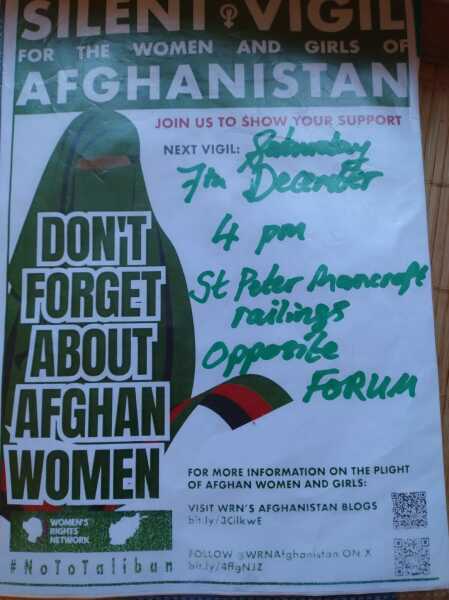 SILENT VIGIL
FOR THE WOMEN AND GIRLS OF
AFGHANISTAN
JOIN US TO SHOW YOUR SUPPORT
NEXT VIGIL: Saturday
7th December
4 pm
St Peter Mancroft
railings
Opposite
FORUM
DON'T
FORGET
ABOUT
AFGHAN
WOMEN
FOR MORE INFORMATION ON THE PLIGHT
OF AFGHAN WOMEN AND GIRLS:
VISIT WRN'S AFGHANISTAN BLOGS
bit.ly/3CilkwE
FOLLOW @WRNAfghanistan ON X
bit.ly/4fIgNJZ
WOMEN'S
RIGHTS
NETWORK
#NoToTaliban